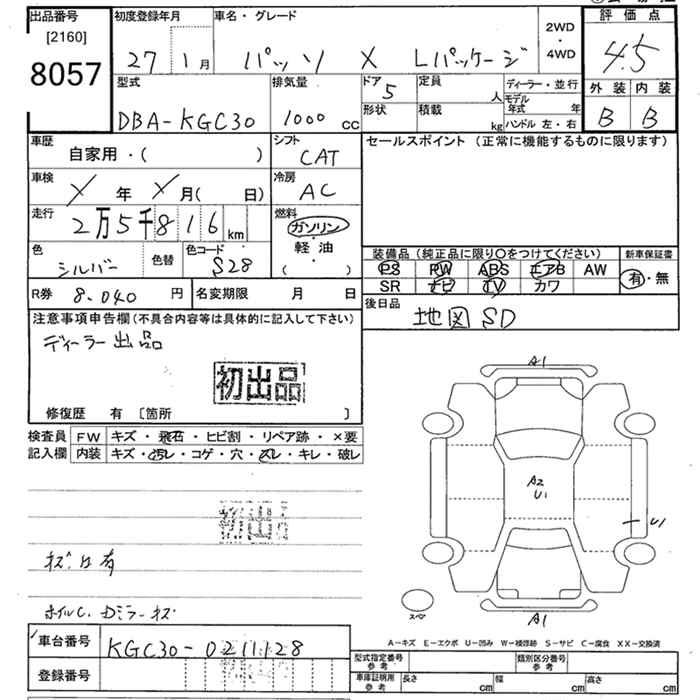 出品番号 初度登録年月 車名・グレード 2WD・4WD 評価点
[2160]
8057
27 1月 パッソ X Lパッケージ 4.5
型式 排気量 ドア 5 定員 人 ディーラー・並行 外装 内装
DBA-KGC30 1000 cc 形状 積載 kg モデル年式 年 ハンドル 左・右 B B
車歴 自家用・( ) シフト CAT セールスポイント (正常に機能するものに限ります)
車検 X 年 X 月( 日) 冷房 AC
走行 2万5千816 km 燃料 ガソリン・軽油( )
色 シルバー 色替 色コード S28
装備品 (純正品に限り○をつけてください) 新車保証書
PS PW ABS エアB AW 有・無
SR ナビ TV カワ
R券 8.040 円 名変期限 月 日 後日品 地図 SD
注意事項申告欄(不具合内容等は具体的に記入して下さい)
ディーラー出品
初出品
修復歴 有 [箇所 ]
検査員記入欄 FW キズ・飛石・ヒビ割・リペア跡・×要
内装 キズ・汚レ・コゲ・穴・スレ・キレ・破レ
初出品
ホイルC. Dミラーキズ
車台番号 KGC30-0211128
登録番号
A1
A2
U1
U1
A1
スペア
A-キズ E-エクボ U-凹み W-補修跡 S-サビ C-腐食 XX-交換済
型式指定番号 参考 類別区分番号 参考
車庫証明用 参考 長さ cm 幅 cm 高さ cm